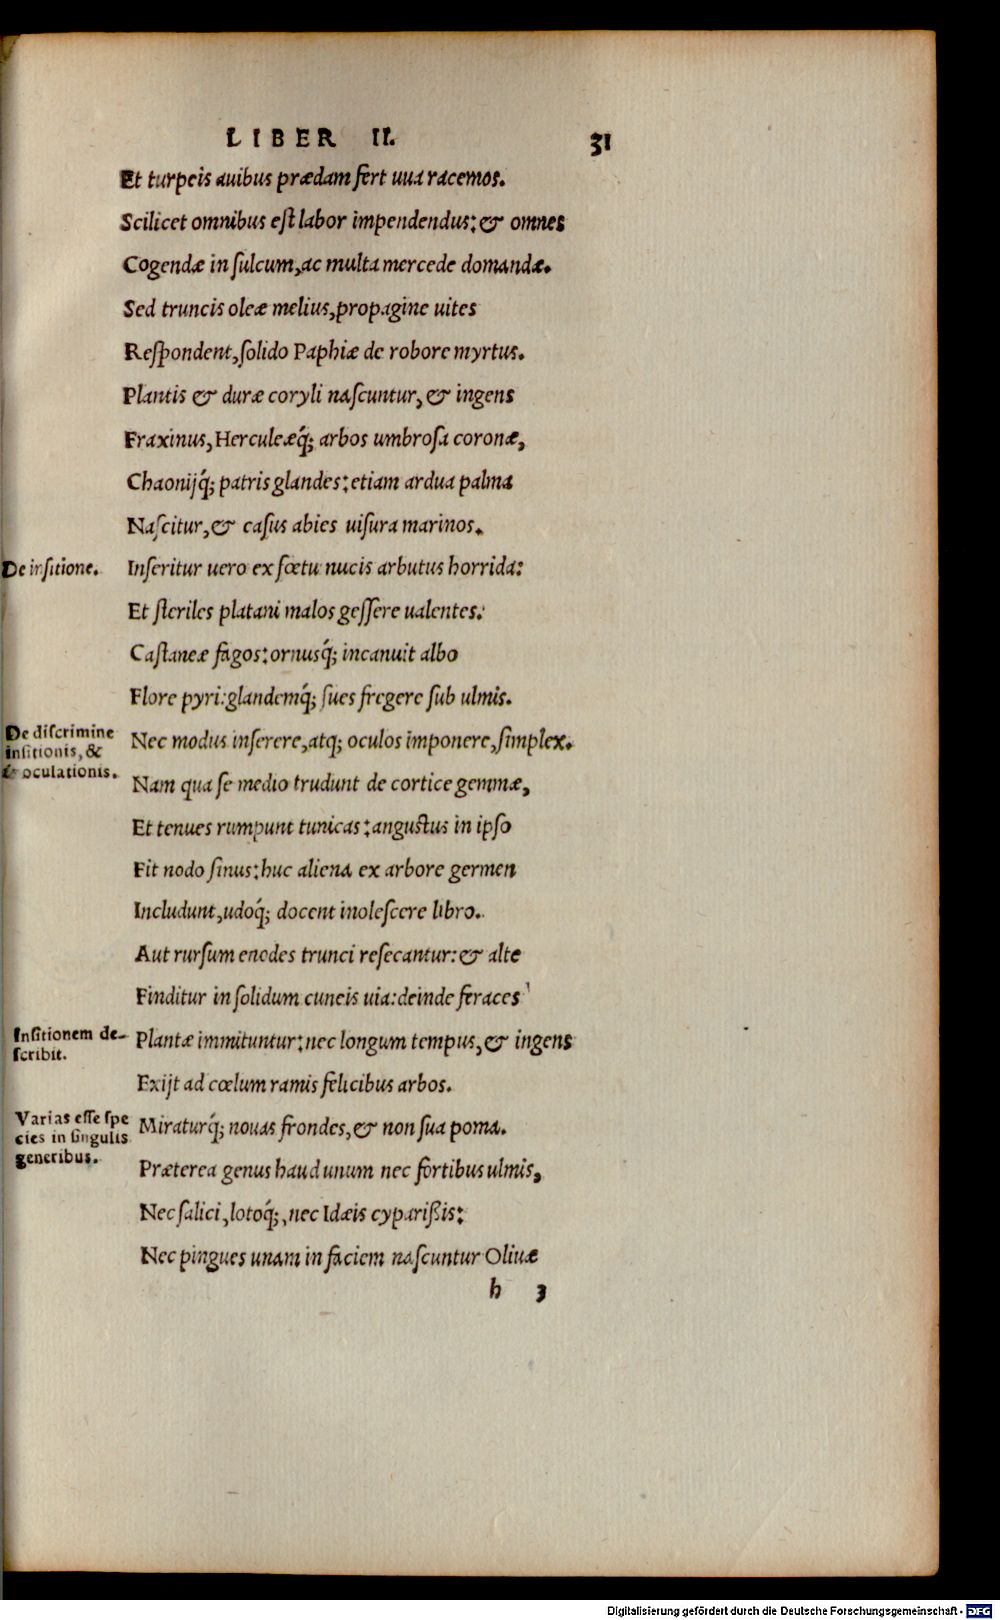 LIBER II. 31
Et turpeis auibus prædam fert uua racemos.
Scilicet omnibus eſt labor impendendus: & omnes
Cogendæ in ſulcum, ac multa mercede domandæ.
Sed truncis oleæ melius, propagine uites
Reſpondent, ſolido Paphiæ de robore myrtus.
Plantis & duræ coryli naſcuntur, & ingens
Fraxinus, Herculeæq́; arbos umbroſa coronæ,
Chaonijq́; patris glandes: etiam ardua palma
Naſcitur, & caſus abies uiſura marinos.
De inſitione.
Inſeritur uero ex fœtu nucis arbutus horrida:
Et ſteriles platani malos geſſere ualentes:
Caſtaneæ fagos: ornusq́; incanuit albo
Flore pyri: glandemq́; ſues fregere ſub ulmis.
De diſcrimine
inſitionis, &
& oculationis.
Nec modus inſerere, atq; oculos imponere, ſimplex.
Nam qua ſe medio trudunt de cortice gemmæ,
Et tenues rumpunt tunicas: anguſtus in ipſo
Fit nodo ſinus: huc aliena ex arbore germen
Includunt, udoq́; docent inoleſcere libro.
Aut rurſum enodes trunci reſecantur: & alte
Finditur in ſolidum cuneis uia: deinde feraces
Inſitionem de-
ſcribit.
Plantæ immituntur: nec longum tempus, & ingens
Exijt ad cœlum ramis felicibus arbos.
Varias eſſe ſpe
cies in ſingulis
generibus.
Miraturq́; nouas frondes, & non ſua poma.
Præterea genus haud unum nec fortibus ulmis,
Nec ſalici, lotoq́;, nec Idæis cyparißis:
Nec pingues unam in faciem naſcuntur Oliuæ
h 3
Digitalisierung gefördert durch die Deutsche Forschungsgemeinschaft - DFG